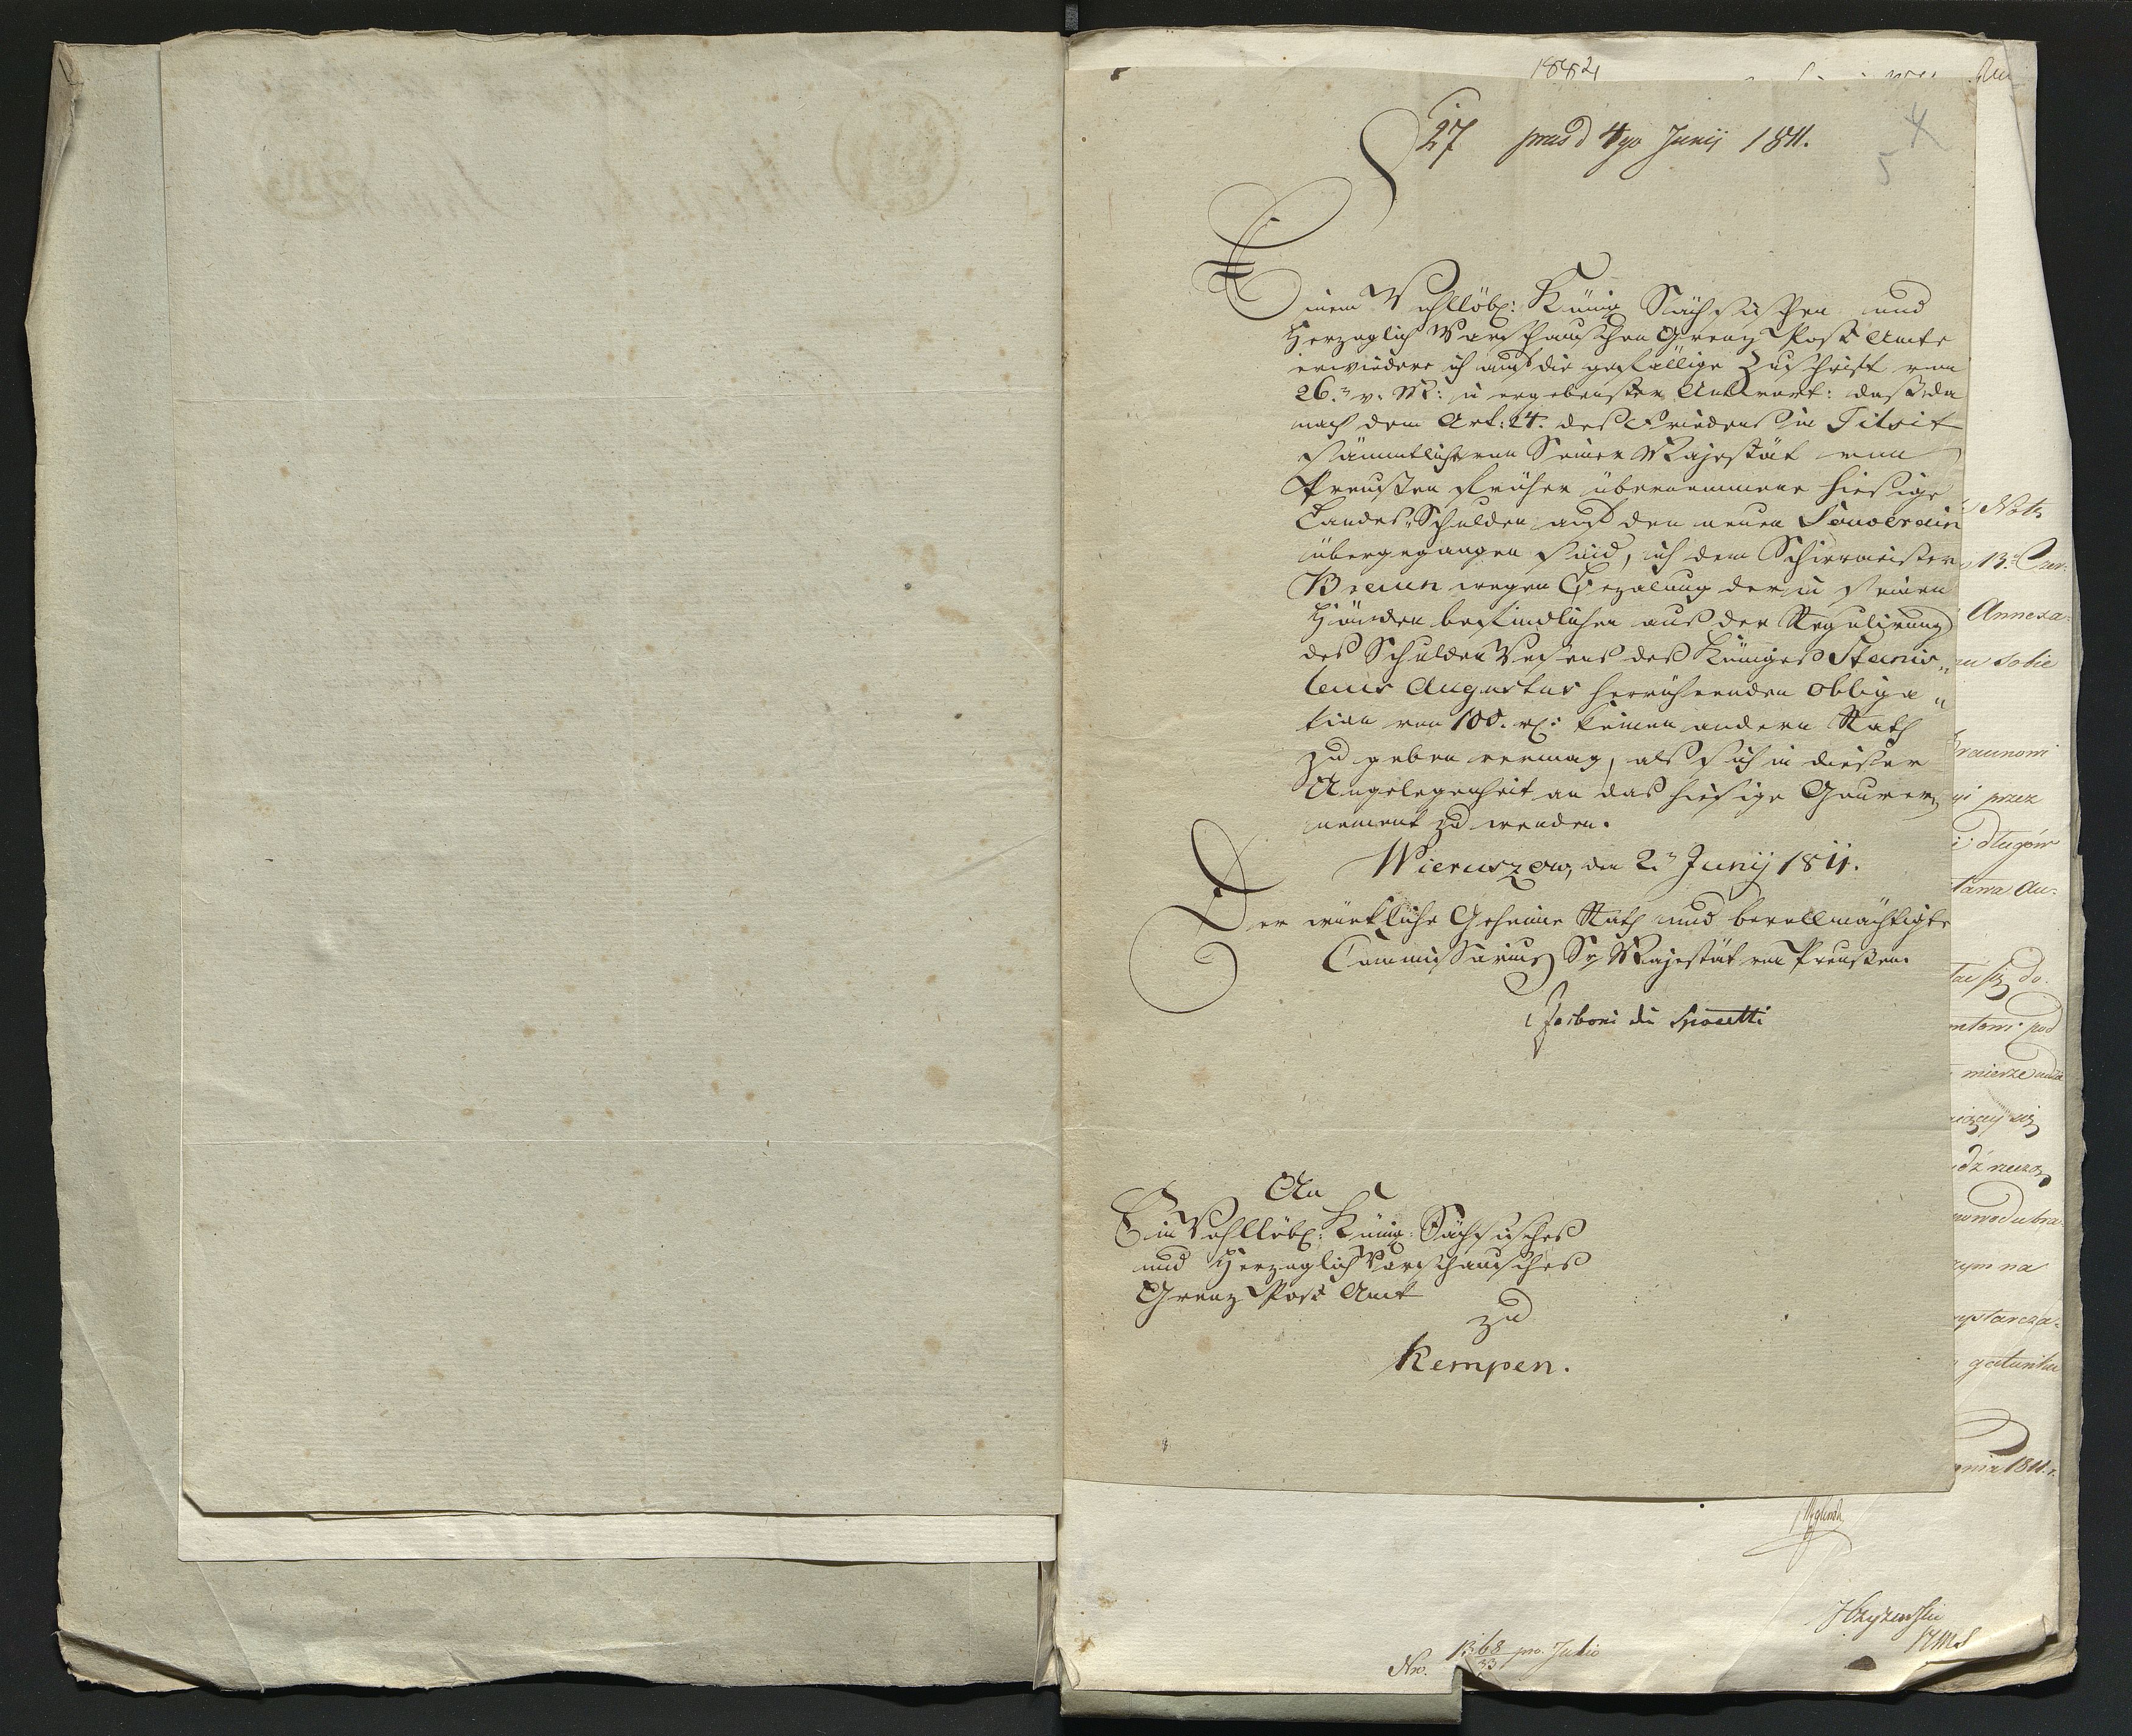 1882
27 praes d 4go Junij 1811.
4
5
Einem Wohllöbl: Königl Sächsischen und
Herzoglich Warschauschen Grenz Post Amte
erwiedere ich auf die gefällige Zuschrift vom
26.n v. M: in ergebenster Antwort: daß da
nach dem Art: 24. des Friedens zu Tilsit
sämmtliche von Seiner Majestät von
Preußen früher übernommene hiesige
Landes-Schulden auf den neuen Souverain
übergegangen sind, ich dem Schirrmeister
Braun wegen Bezalung der in seinen
Händen befindlichen aus der Regulirung
des Schulden Wesens des Königs Stanis„
laus Augustus herrührenden Obliga„
tion von 100. rl: keinen andern Rath
zu geben vermag, als sich in dieser
Angelegenheit an das hiesige Gouver„
nement zu wenden.
Wieruszow, den 2.n Junij 1811.
Der würkliche Geheime Rath und bevollmächtigte
Commissarius Sr Majestät von Preußen.
Zerboni di Sposetti
An
Ein Wohllöbl: Königl: Sächsisches
und Herzoglich Warschausches
Grenz Post Amt
zu
Kempen.
Nota
13. Czer:
Annexa
sobie
Braunowi
przez
i długów
ława Au:
do
pod
mierze
rym na
wystarcza:
gatunku
1811. r.
No. 1368/33 pro. Julio